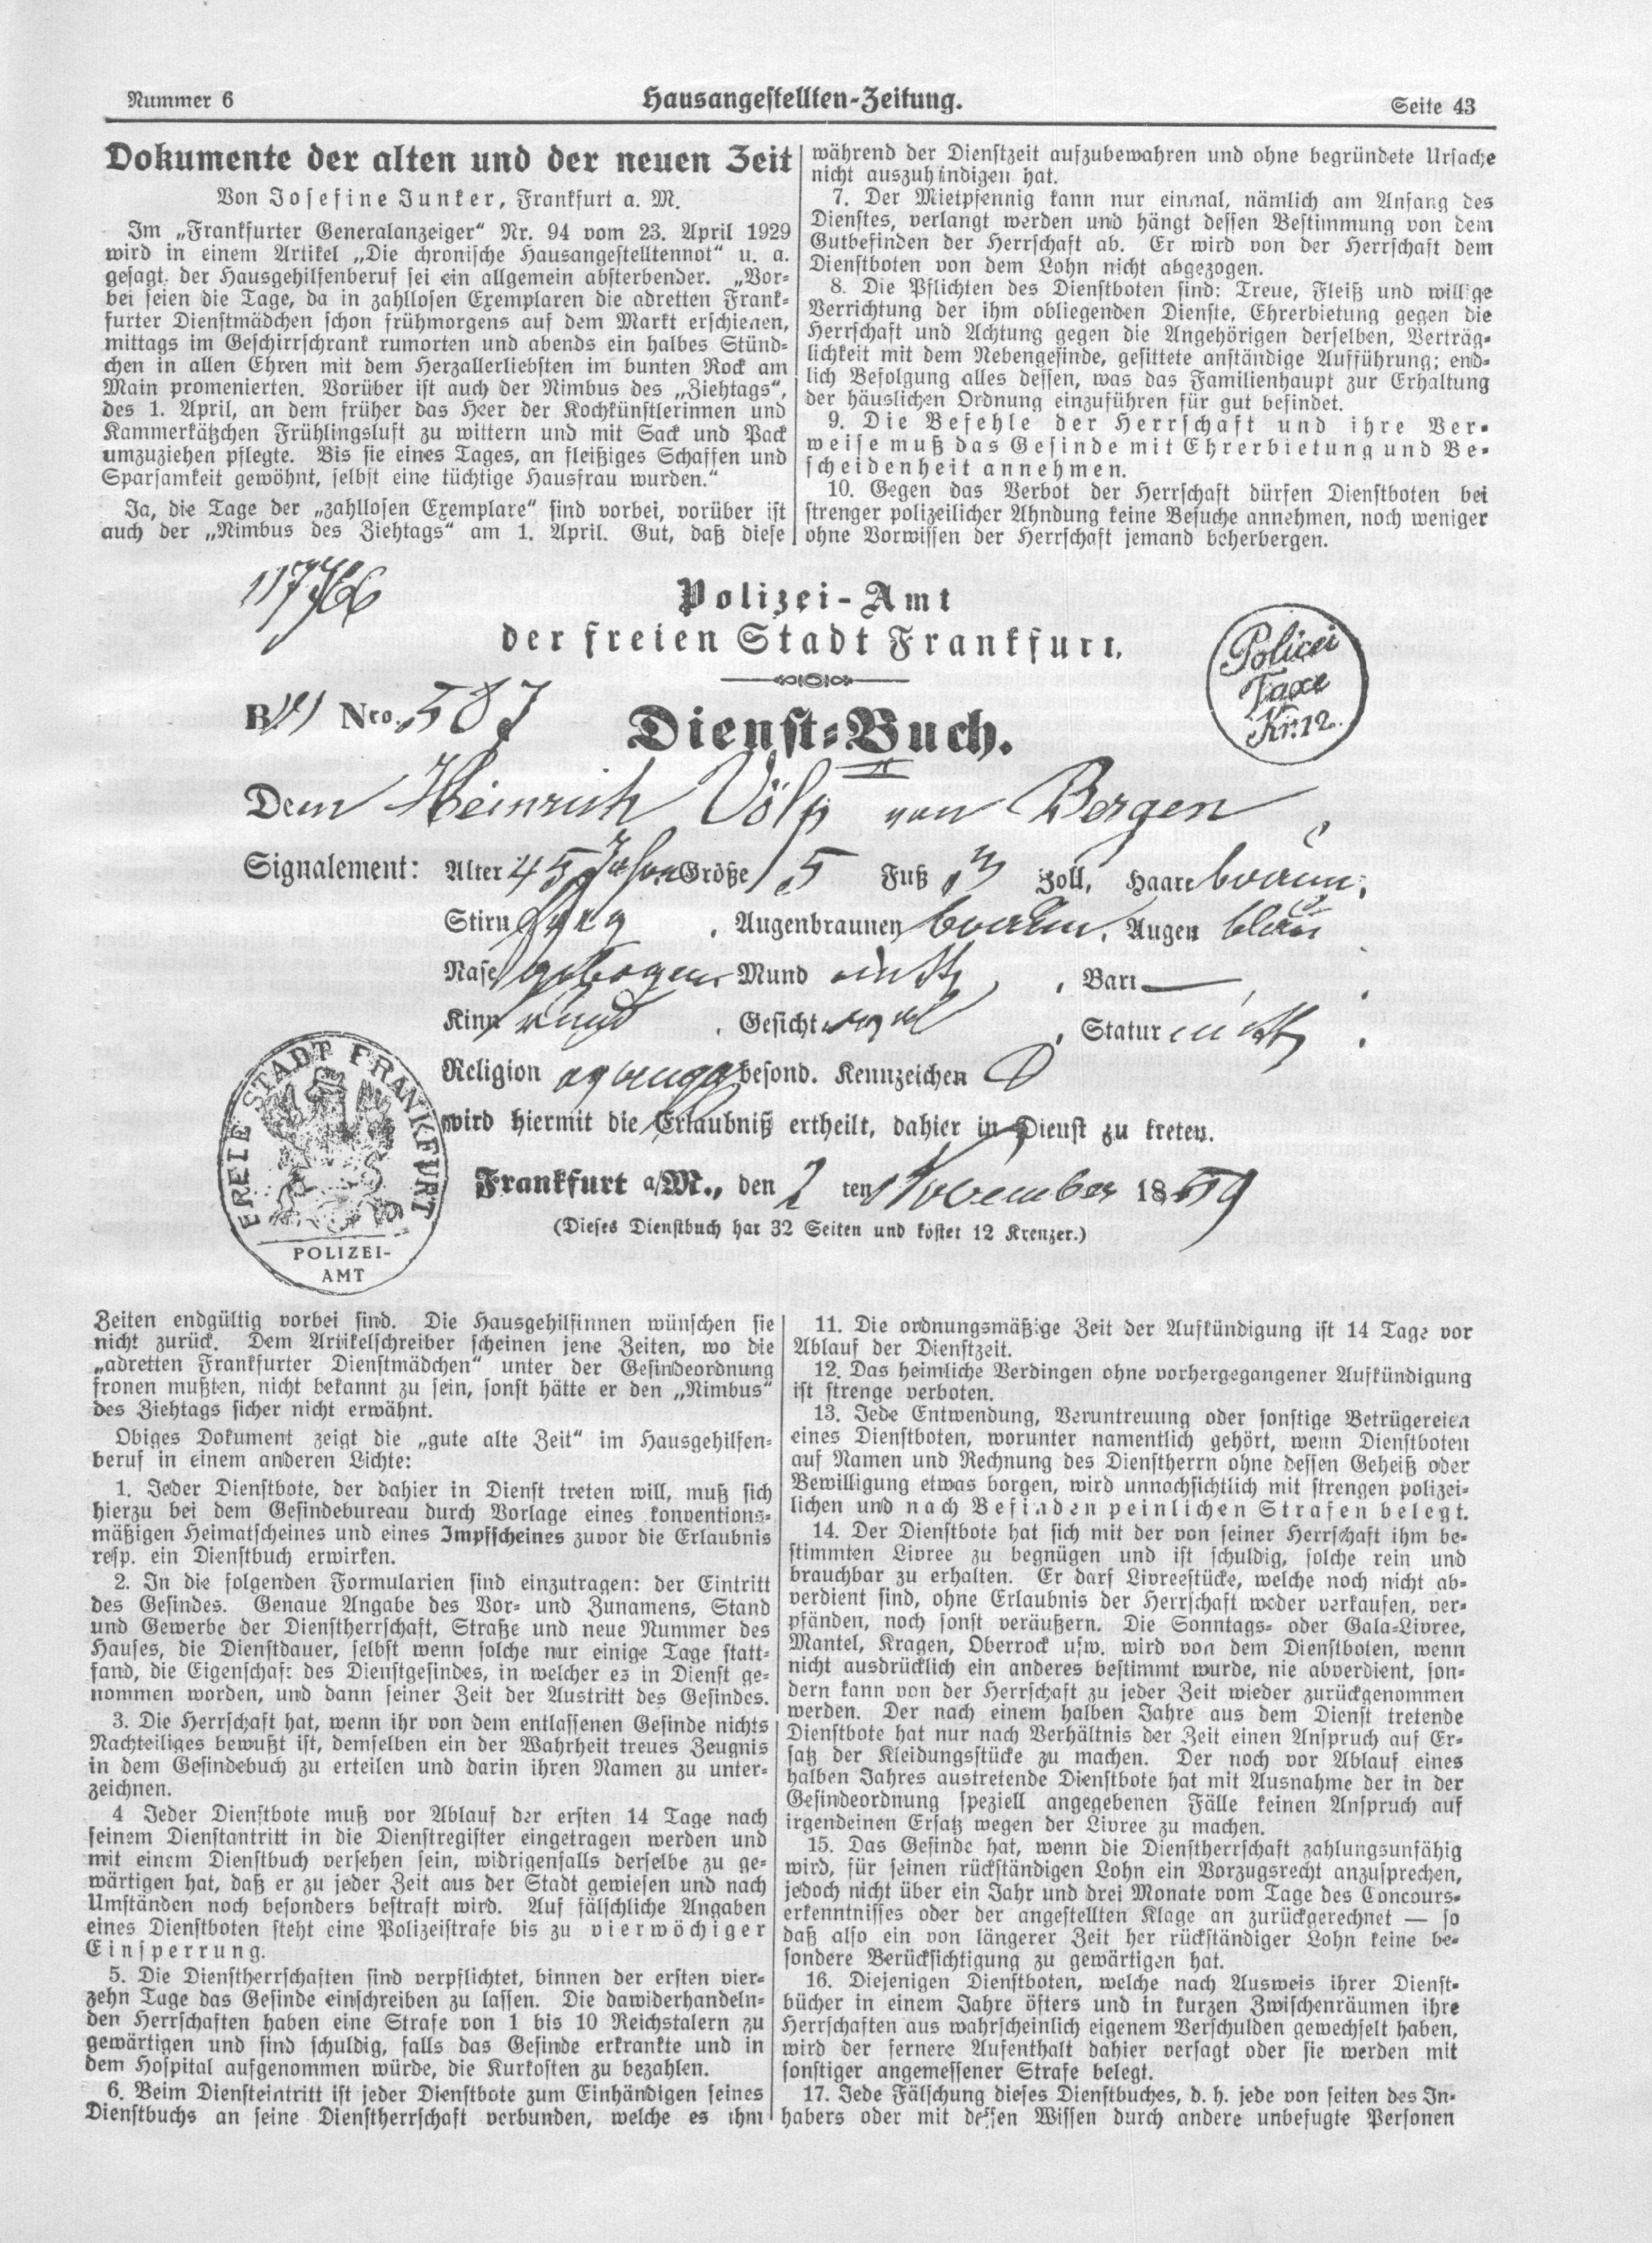 Nummer 6
Hausangestellten-Zeitung.
Seite 43
Dokumente der alten und der neuen Zeit
Von Josefine Junker, Frankfurt a. M.
Im „Frankfurter Generalanzeiger“ Nr. 94 vom 23. April 1929
wird in einem Artikel „Die chronische Hausangestelltennot“ u. a.
gesagt, der Hausgehilfenberuf sei ein allgemein absterbender. „Vor-
bei seien die Tage, da in zahllosen Exemplaren die adretten Frank-
furter Dienstmädchen schon frühmorgens auf dem Markt erschienen,
mittags im Geschirrschrank rumorten und abends ein halbes Stünd-
chen in allen Ehren mit dem Herzallerliebsten im bunten Rock am
Main promenierten. Vorüber ist auch der Nimbus des „Ziehtags“,
des 1. April, an dem früher das Heer der Kochkünstlerinnen und
Kammerkätzchen Frühlingsluft zu wittern und mit Sack und Pack
umzuziehen pflegte. Bis sie eines Tages, an fleißiges Schaffen und
Sparsamkeit gewöhnt, selbst eine tüchtige Hausfrau wurden.“
Ja, die Tage der „zahllosen Exemplare“ sind vorbei, vorüber ist
auch der „Nimbus des Ziehtags“ am 1. April. Gut, daß diese
während der Dienstzeit aufzubewahren und ohne begründete Ursache
nicht auszuhändigen hat.
7. Der Mietpfennig kann nur einmal, nämlich am Anfang des
Dienstes, verlangt werden und hängt dessen Bestimmung von dem
Gutbefinden der Herrschaft ab. Er wird von der Herrschaft dem
Dienstboten von dem Lohn nicht abgezogen.
8. Die Pflichten des Dienstboten sind: Treue, Fleiß und willige
Verrichtung der ihm obliegenden Dienste, Ehrerbietung gegen die
Herrschaft und Achtung gegen die Angehörigen derselben, Verträg-
lichkeit mit dem Nebengesinde, gesittete anständige Aufführung; end-
lich Befolgung alles dessen, was das Familienhaupt zur Erhaltung
der häuslichen Ordnung einzuführen für gut befindet.
9. Die Befehle der Herrschaft und ihre Ver-
weise muß das Gesinde mit Ehrerbietung und Be-
scheidenheit annehmen.
10. Gegen das Verbot der Herrschaft dürfen Dienstboten bei
strenger polizeilicher Ahndung keine Besuche annehmen, noch weniger
ohne Vorwissen der Herrschaft jemand beherbergen.
Polizei-Amt
der freien Stadt Frankfurt.
Policei
Taxe
Kr. 12.
B Nro. 587
Dienst-Buch.
Dem Heinrich Völp von Bergen
Signalement: Alter 45 Jahre Größe 5 Fuß 3 Zoll, Haare braun,
Stirn , Augenbraunen braun, Augen blau
Nase gebogen Mund mittl , Bart —
Kinn rund , Gesicht oval , Statur mittl .
Religion besond. Kennzeichen
wird hiermit die Erlaubniß ertheilt, dahier in Dienst zu treten.
Frankfurt a/M., den 2 ten November 1859
(Dieses Dienstbuch hat 32 Seiten und kostet 12 Kreuzer.)
FREIE STADT FRANKFURT
POLIZEI-
AMT
Zeiten endgültig vorbei sind. Die Hausgehilfinnen wünschen sie
nicht zurück. Dem Artikelschreiber scheinen jene Zeiten, wo die
„adretten Frankfurter Dienstmädchen“ unter der Gesindeordnung
fronen mußten, nicht bekannt zu sein, sonst hätte er den „Nimbus“
des Ziehtags sicher nicht erwähnt.
Obiges Dokument zeigt die „gute alte Zeit“ im Hausgehilfen-
beruf in einem anderen Lichte:
1. Jeder Dienstbote, der dahier in Dienst treten will, muß sich
hierzu bei dem Gesindebureau durch Vorlage eines konventions-
mäßigen Heimatscheines und eines Impfscheines zuvor die Erlaubnis
resp. ein Dienstbuch erwirken.
2. In die folgenden Formularien sind einzutragen: der Eintritt
des Gesindes. Genaue Angabe des Vor- und Zunamens, Stand
und Gewerbe der Dienstherrschaft, Straße und neue Nummer des
Hauses, die Dienstdauer, selbst wenn solche nur einige Tage statt-
fand, die Eigenschaft des Dienstgesindes, in welcher es in Dienst ge-
nommen worden, und dann seiner Zeit der Austritt des Gesindes.
3. Die Herrschaft hat, wenn ihr von dem entlassenen Gesinde nichts
Nachteiliges bewußt ist, demselben ein der Wahrheit treues Zeugnis
in dem Gesindebuch zu erteilen und darin ihren Namen zu unter-
zeichnen.
4 Jeder Dienstbote muß vor Ablauf der ersten 14 Tage nach
seinem Dienstantritt in die Dienstregister eingetragen werden und
mit einem Dienstbuch versehen sein, widrigenfalls derselbe zu ge-
wärtigen hat, daß er zu jeder Zeit aus der Stadt gewiesen und nach
Umständen noch besonders bestraft wird. Auf fälschliche Angaben
eines Dienstboten steht eine Polizeistrafe bis zu vierwöchiger
Einsperrung.
5. Die Dienstherrschaften sind verpflichtet, binnen der ersten vier-
zehn Tage das Gesinde einschreiben zu lassen. Die dawiderhandeln-
den Herrschaften haben eine Strafe von 1 bis 10 Reichstalern zu
gewärtigen und sind schuldig, falls das Gesinde erkrankte und in
dem Hospital aufgenommen würde, die Kurkosten zu bezahlen.
6. Beim Diensteintritt ist jeder Dienstbote zum Einhändigen seines
Dienstbuchs an seine Dienstherrschaft verbunden, welche es ihm
11. Die ordnungsmäßige Zeit der Aufkündigung ist 14 Tage vor
Ablauf der Dienstzeit.
12. Das heimliche Verdingen ohne vorhergegangener Aufkündigung
ist strenge verboten.
13. Jede Entwendung, Veruntreuung oder sonstige Betrügereien
eines Dienstboten, worunter namentlich gehört, wenn Dienstboten
auf Namen und Rechnung des Dienstherrn ohne dessen Geheiß oder
Bewilligung etwas borgen, wird unnachsichtlich mit strengen polizei-
lichen und nach Befinden peinlichen Strafen belegt.
14. Der Dienstbote hat sich mit der von seiner Herrschaft ihm be-
stimmten Livree zu begnügen und ist schuldig, solche rein und
brauchbar zu erhalten. Er darf Livreestücke, welche noch nicht ab-
verdient sind, ohne Erlaubnis der Herrschaft weder verkaufen, ver-
pfänden, noch sonst veräußern. Die Sonntags- oder Gala-Livree,
Mantel, Kragen, Oberrock usw. wird von dem Dienstboten, wenn
nicht ausdrücklich ein anderes bestimmt wurde, nie abverdient, son-
dern kann von der Herrschaft zu jeder Zeit wieder zurückgenommen
werden. Der nach einem halben Jahre aus dem Dienst tretende
Dienstbote hat nur nach Verhältnis der Zeit einen Anspruch auf Er-
satz der Kleidungsstücke zu machen. Der noch vor Ablauf eines
halben Jahres austretende Dienstbote hat mit Ausnahme der in der
Gesindeordnung speziell angegebenen Fälle keinen Anspruch auf
irgendeinen Ersatz wegen der Livree zu machen.
15. Das Gesinde hat, wenn die Dienstherrschaft zahlungsunfähig
wird, für seinen rückständigen Lohn ein Vorzugsrecht anzusprechen,
jedoch nicht über ein Jahr und drei Monate vom Tage des Concours-
erkenntnisses oder der angestellten Klage an zurückgerechnet — so
daß also ein von längerer Zeit her rückständiger Lohn keine be-
sondere Berücksichtigung zu gewärtigen hat.
16. Diejenigen Dienstboten, welche nach Ausweis ihrer Dienst-
bücher in einem Jahre öfters und in kurzen Zwischenräumen ihre
Herrschaften aus wahrscheinlich eigenem Verschulden gewechselt haben,
wird der fernere Aufenthalt dahier versagt oder sie werden mit
sonstiger angemessener Strafe belegt.
17. Jede Fälschung dieses Dienstbuches, d. h. jede von seiten des In-
habers oder mit dessen Wissen durch andere unbefugte Personen